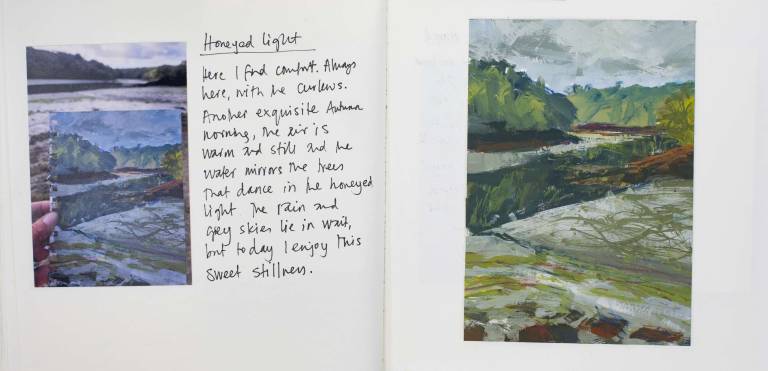 Honeyed light
Here I find comfort. Always
here, with the Curlews.
Another exquisite Autumn
morning, the air is
warm and still and the
water mirrors the trees
that dance in the honeyed
light. The rain and
grey skies lie in wait,
but today I enjoy this
sweet stillness.